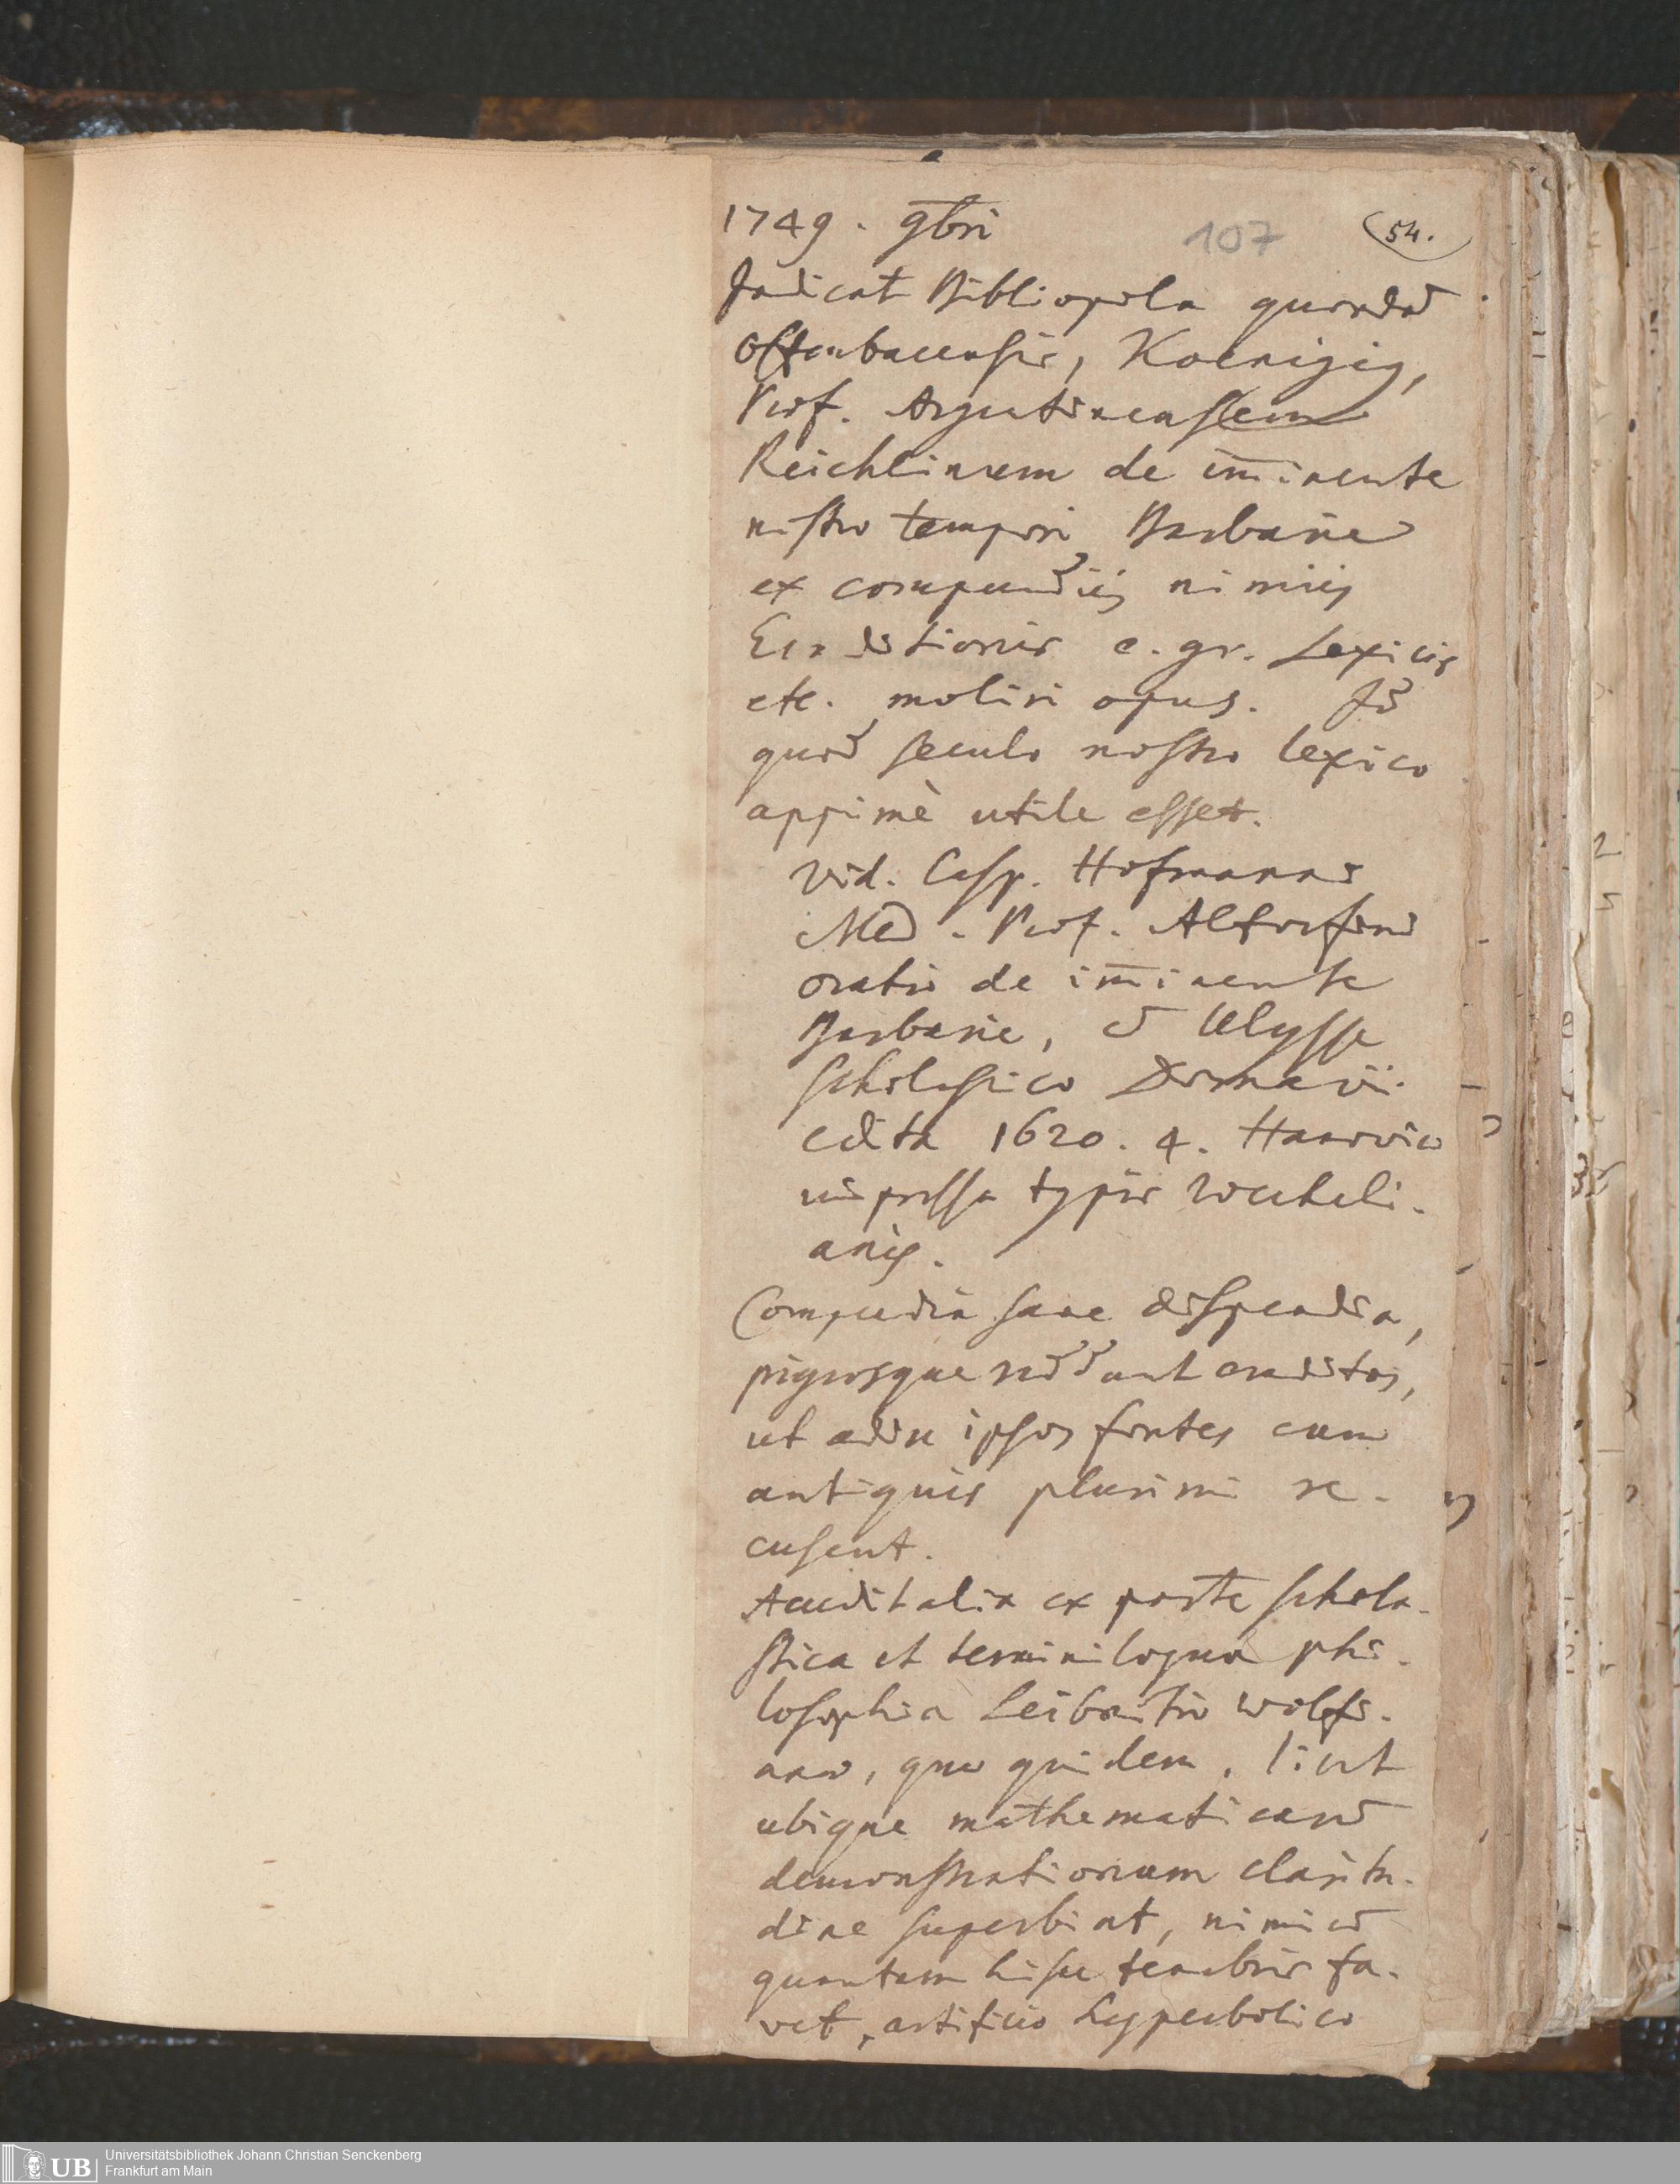 1749. 9bri
107
(54.)
Indicat Bibliopola quondam
Offenbacensis, Koenigig,
Prof. Argentinensem
Reichlinum de im̅inente
nostro tempori Barbarie
ex compendiis nimiis
Eruditionis e. gr. Lexicis
etc. moliri opus.
quod seculo nostro lexico
apprimè utile esset.
vid. Casp. Hofmanni
Med. Prof. Altorfini
oratio de im̅inente
Barbarie, Ulysse
scholastico Dornavii
edita 1620. 4. Hanovico
impressa typis Wecheli-
anis.
Compendia sane dispendia,
pigrosque reddunt eruditos,
ut adire ipsos fontes cum
antiquis plurimi re-
cusent.
Accedit alia ex parte schola-
stica et terminiloqua phi-
losophia Leibnitio Wolfi-
ana, quae quidem, licet
ubique mathematicarum
demonstrationum claritu-
dine superbiat, nimium
quantum hisce tenebris fa-
vet, artificio hyperbolico
Universitätsbibliothek Johann Christian Senckenberg
Frankfurt am Main
UB